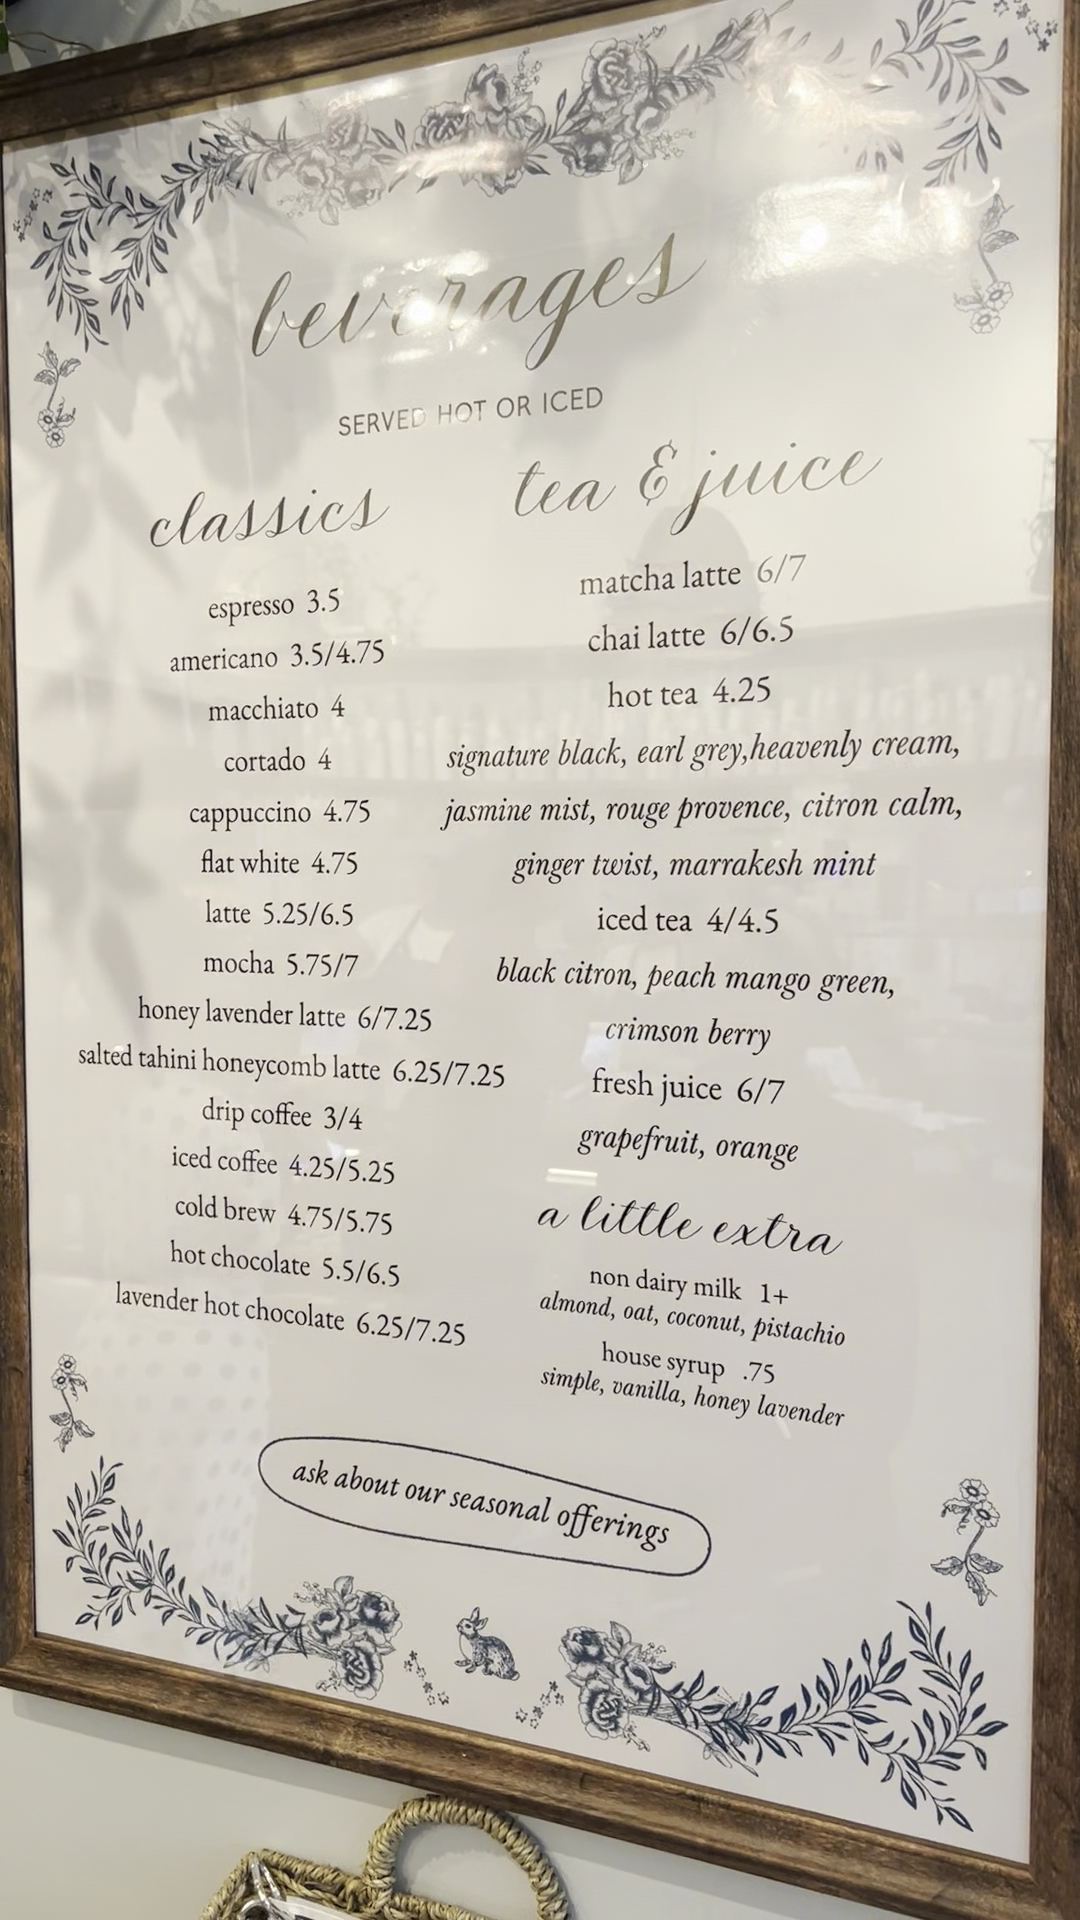 beverages
SERVED HOT OR ICED
classics
espresso 3.5
americano 3.5/4.75
macchiato 4
cortado 4
cappuccino 4.75
flat white 4.75
latte 5.25/6.5
mocha 5.75/7
honey lavender latte 6/7.25
salted tahini honeycomb latte 6.25/7.25
drip coffee 3/4
iced coffee 4.25/5.25
cold brew 4.75/5.75
hot chocolate 5.5/6.5
lavender hot chocolate 6.25/7.25
tea & juice
matcha latte 6/7
chai latte 6/6.5
hot tea 4.25
signature black, earl grey,heavenly cream,
jasmine mist, rouge provence, citron calm,
ginger twist, marrakesh mint
iced tea 4/4.5
black citron, peach mango green,
crimson berry
fresh juice 6/7
grapefruit, orange
a little extra
non dairy milk 1+
almond, oat, coconut, pistachio
house syrup .75
simple, vanilla, honey lavender
ask about our seasonal offerings